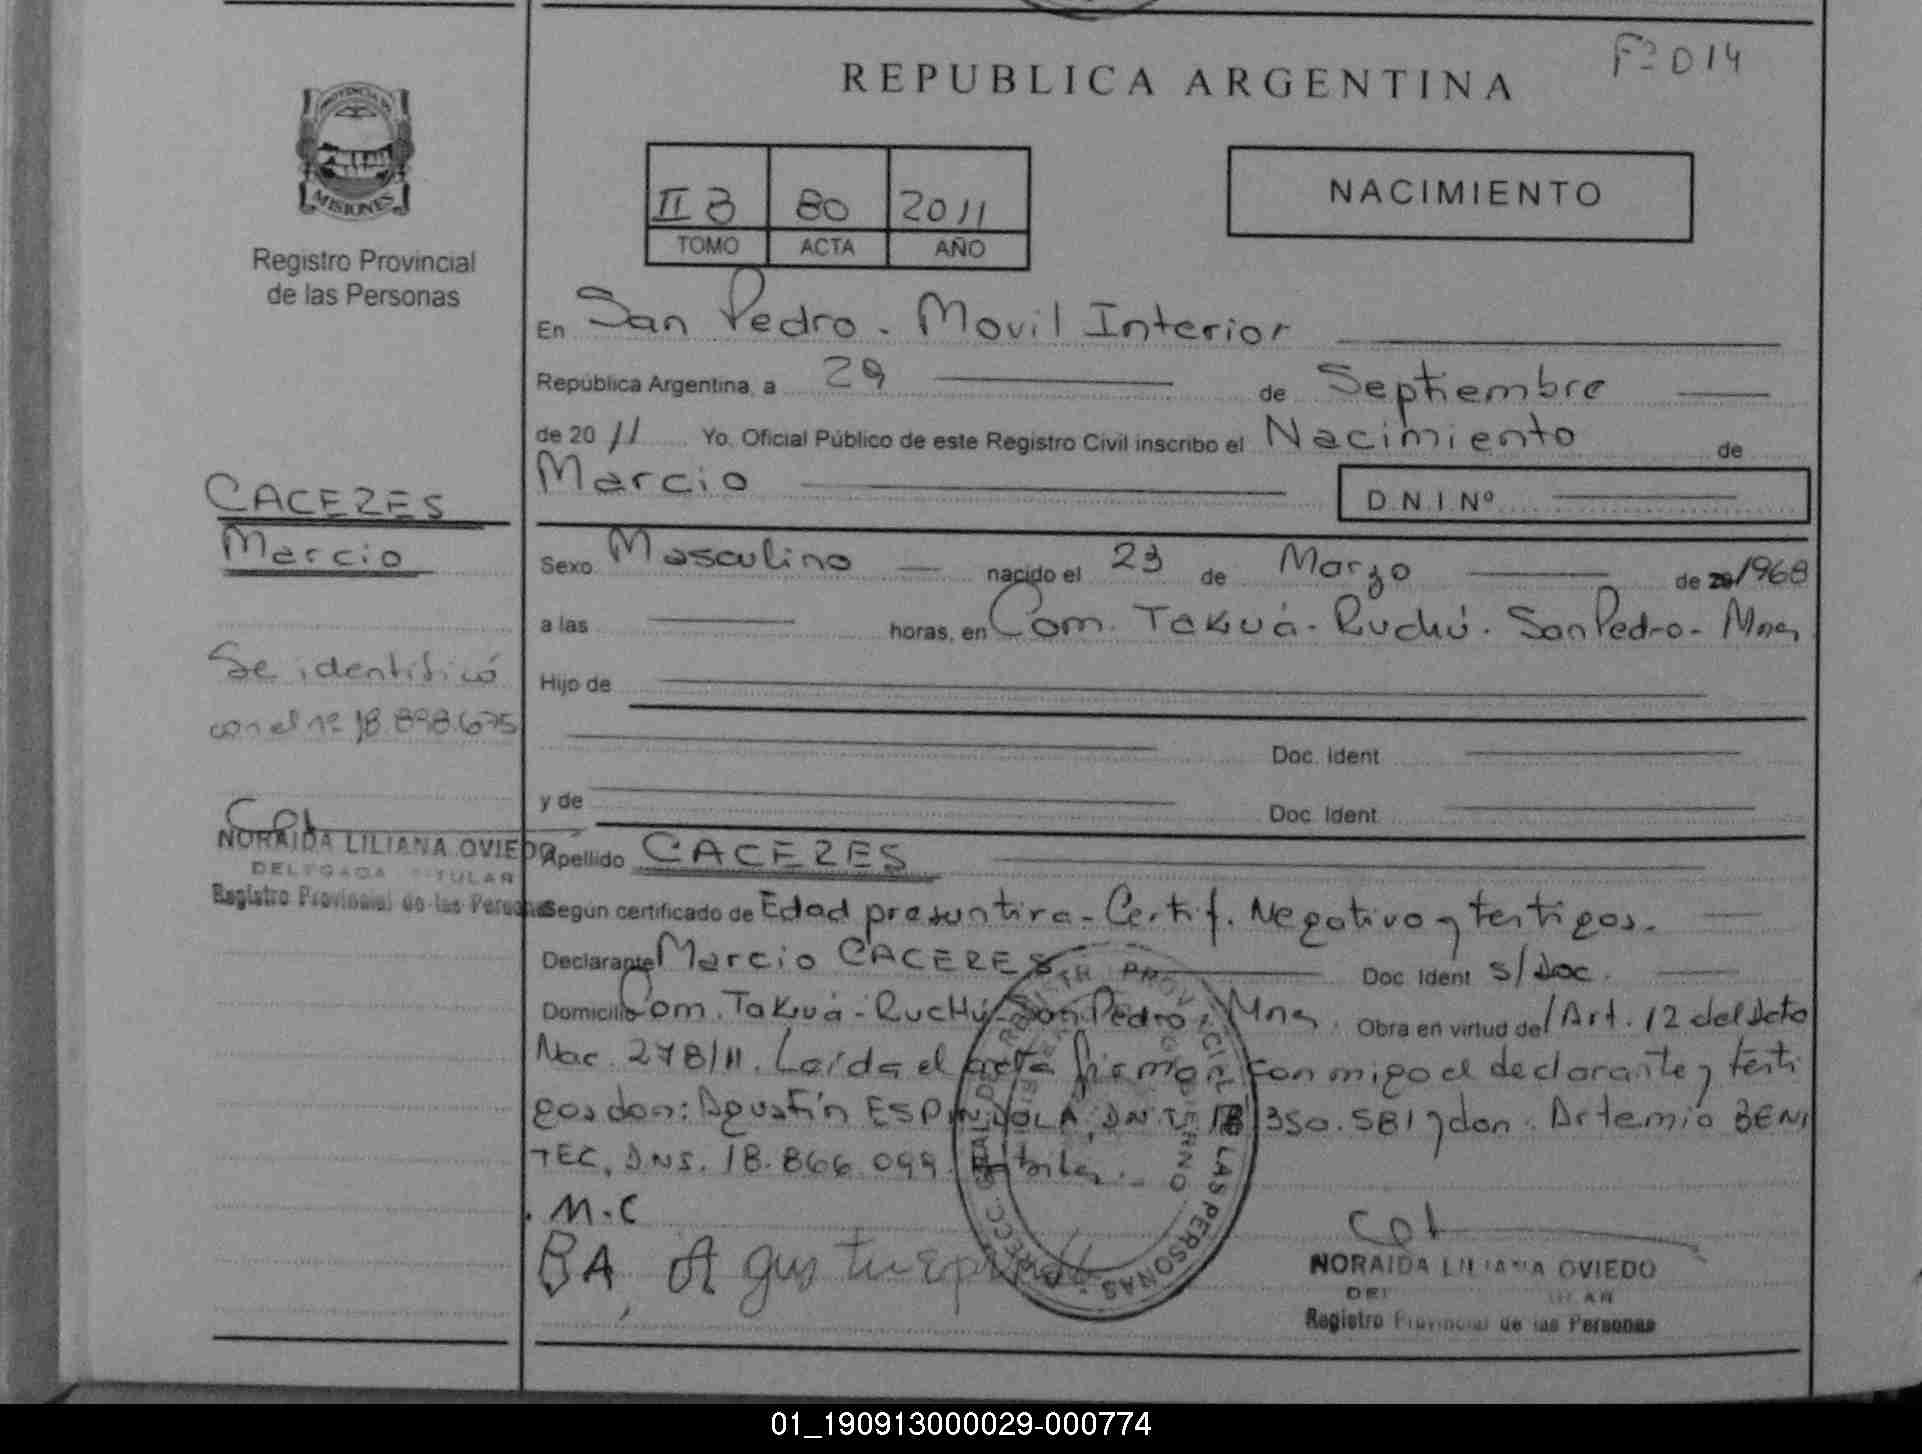 Fº 014
REPUBLICA ARGENTINA
PROVINCIA DE
MISIONES
Registro Provincial
de las Personas
II B 80 2011
TOMO ACTA AÑO
NACIMIENTO
En San Pedro - Movil Interior
República Argentina, a 29 de Septiembre
de 20 11 Yo, Oficial Público de este Registro Civil inscribo el Nacimiento de
Marcio D.N.I. Nº
CACERES
Marcio
Sexo Masculino nacido el 23 de Marzo de 20/1968
a las horas, en Com. Takuá-Ruchú. San Pedro - Mnes
Se identificó
con el nº 18.898.675
Hijo de
Doc. Ident
y de Doc. Ident
NORAIDA LILIANA OVIEDO
DELEGADA TITULAR
Registro Provincial de las Personas
Apellido CACERES
Según certificado de Edad presuntiva - Certif. Negativo y testigos.
Declarante Marcio CACERES Doc Ident s/Doc.
Domicilio Com. Takuá-Ruchú-San Pedro, Mnes. Obra en virtud del Art. 12 del Dcto
Nac. 278/11. Leída el acta firman conmigo el declarante y testi
gos don: Agustín ESPINDOLA, DNI. 18 350.581 y don. Artemio BENI
TEC, DNI. 18.866.099.
M.C
BA, Agustin
REGISTR PROVINCIAL DE LAS PERSONAS
NORAIDA LILIANA OVIEDO
DEL ULAR
Registro Provincial de las Personas
01_190913000029-000774